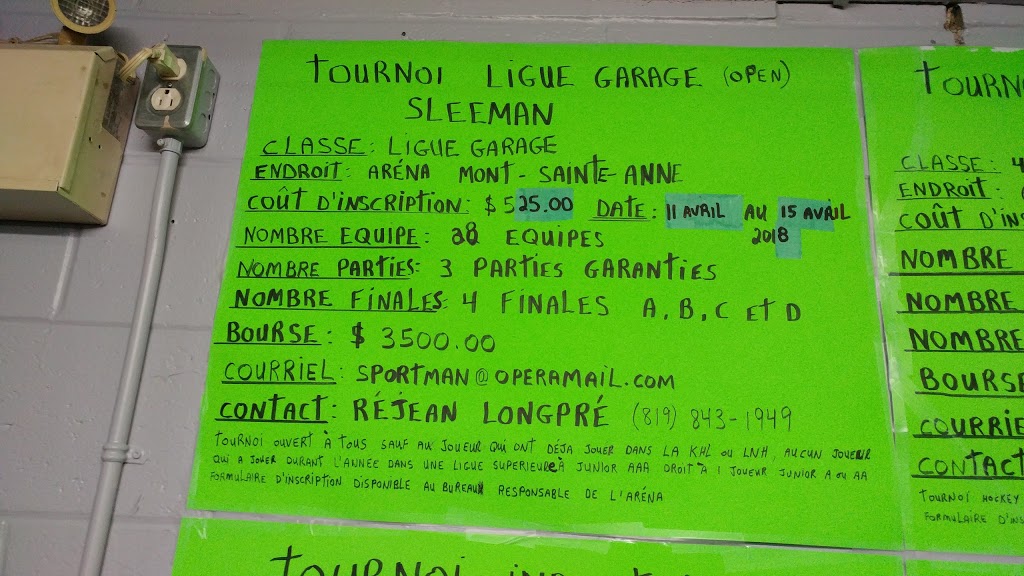 TOURNOI LIGUE GARAGE (OPEN)
SLEEMAN
CLASSE: LIGUE GARAGE
ENDROIT: ARÉNA MONT-SAINTE-ANNE
COÛT D'INSCRIPTION: $ 525.00 DATE: 11 AVRIL AU 15 AVRIL
2018
NOMBRE EQUIPE: 28 EQUIPES
NOMBRE PARTIES: 3 PARTIES GARANTIES
NOMBRE FINALES: 4 FINALES A, B, C ET D
BOURSE: $ 3500.00
COURRIEL: SPORTMAN@OPERAMAIL.COM
CONTACT: RÉJEAN LONGPRÉ (819) 843-1949
TOURNOI OUVERT À TOUS SAUF AUX JOUEUR QUI ONT DÉJA JOUER DANS LA KHL OU LNH, AUCUN JOUEUR
QUI A JOUER DURANT L'ANNÉE DANS UNE LIGUE SUPERIEURE À JUNIOR AAA DROIT À 1 JOUEUR JUNIOR A OU AA
FORMULAIRE D'INSCRIPTION DISPONIBLE AU BUREAU RESPONSABLE DE L'ARÉNA
TOURN
CLASSE: 4
ENDROIT:
COÛT D'INS
NOMBRE
NOMBRE
NOMBRE
BOURSE
COURRIE
CONTACT
TOURNOI HOCKEY
FORMULAIRE D'INS
TOURNOI